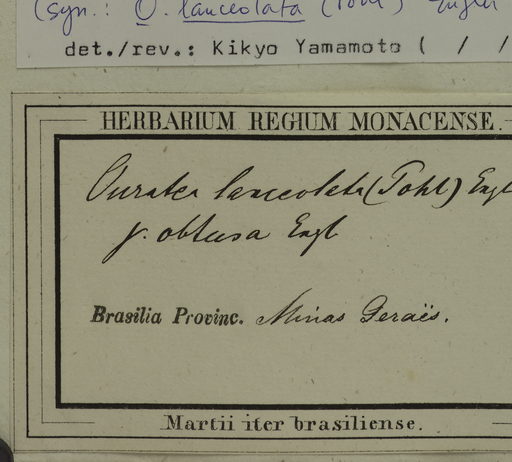 (syn.: O. lanceolata (Pohl) Engler
det./rev.: Kikyo Yamamoto ( / /
HERBARIUM REGIUM MONACENSE.
Ouratea lanceolata (Pohl) Engl
γ. obtusa Engl
Brasilia Provinc. Minas Geraës.
Martii iter brasiliense.